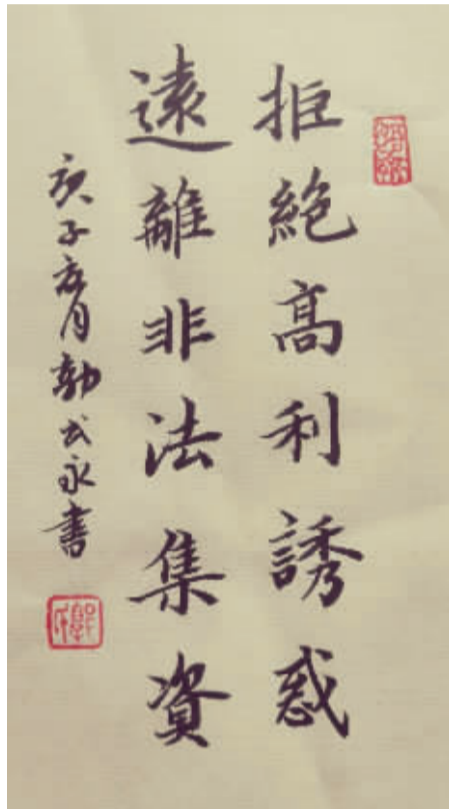 拒絶高利誘惑
遠離非法集資
庚子亥月勃式永書